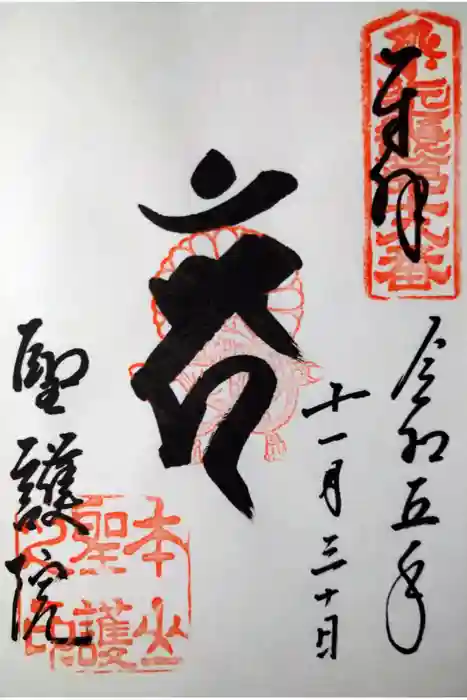 奉拝
第十八番
令和五年
十一月三十日
聖護院
本山
聖護